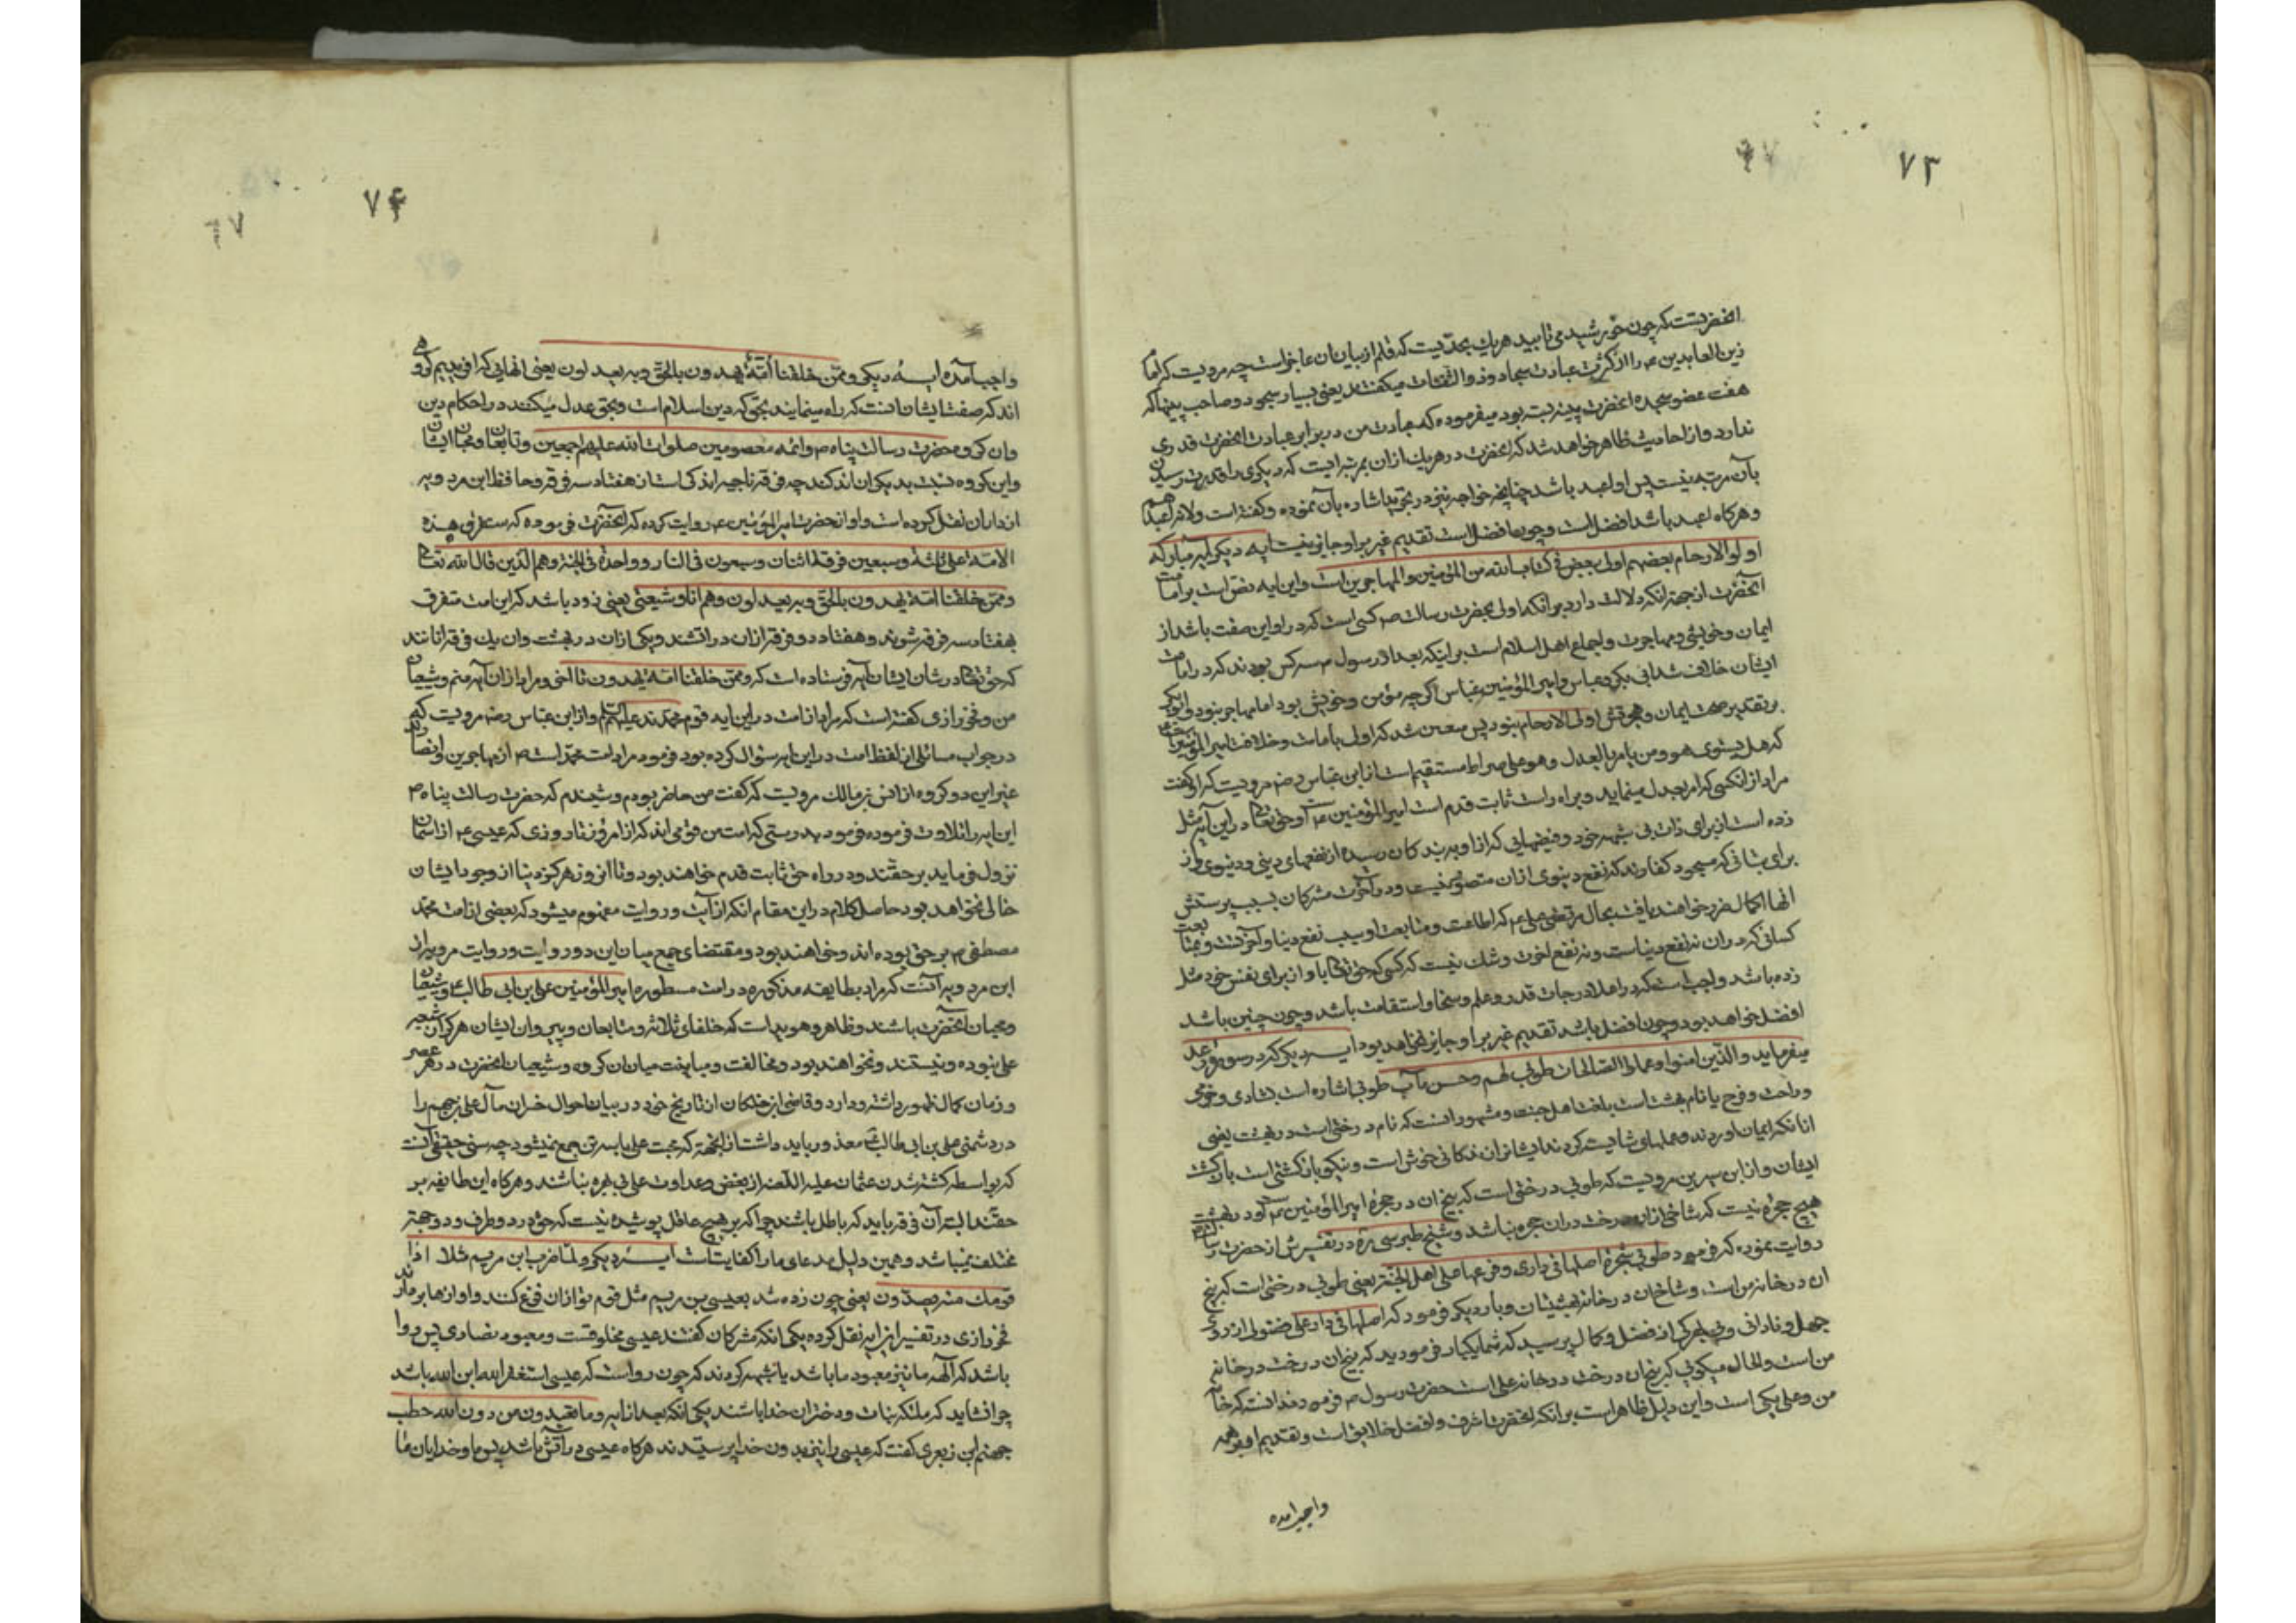 ۷۳
انحضرتست که چون خورشید می تابید هریك بحدّیست که قلم از بیان ان عاجزاست چه مرویست که امام
زین العابدین ع را از کثرت عبادت سجاد و ذو الثفنات میکفتند یعنی بسیار سجود و صاحب پینها که
هفت عضو سجده انحضرت پینه بسته بود میفرموده که عبادت من در برابر عبادت انحضرت قدری
ندارد و از احادیث ظاهر خواهد شد که انحضرت در هریك از ان بمرتبه ایست که دیکری را قدرت رسیدن
بآن مرتبه نیست پس او اعبد باشد چنانچه خواجه نیز در تجرید اشاره بآن نموده و کفته است ولانه اعبدهم
و هرکاه اعبد باشد افضل است و چون افضل است تقدیم غیر بر او جایز نیست ایه دیکر ایه مبارکه
اولو الارحام بعضهم اولی ببعض فی کتاب الله من المؤمنین والمهاجرین است و این ایه نص است بر امامت
انحضرت از جهة انکه دلالت دارد بر انکه اولی بحضرت رسالت ص کسی است که در او این صفت باشد از
ایمان و خویشی و مهاجرت و اجماع اهل اسلام است بر اینکه بعد از رسول ص سه کس بودند که در امامت
ایشان خلاف شد ابی بکر و عباس و امیر المؤمنین عباس اکرچه مؤمن و خویش بود اما مهاجر نبود و ابو بکر
بر تقدیر صحت ایمان و هجرتش اولی الارحام نبود پس معین شد که اولی بامامت و خلافت امیر المؤمنین است
که هل یستوی هو ومن یامر بالعدل وهو علی صراط مستقیم است از ابن عباس رضه مرویست که او کفت
مراد از انکسی که امر بعدل مینماید و براه راست ثابت قدم است امیر المؤمنین ع است و حق تعالی در این آیه مثل
زده است از برای ذات بی شبهه خود و فیضهایی که از او به بندکان رسیده از نفعهای دینی و دینوی و از
برای بتانی که مسجود کفارند که نفع دینوی از ان متصور نیست و در آخرت مشرکان بسبب پرستش
انها اکمال ضرر خواهند یافت بحال مرتضی علی ع که اطاعت و متابعت او سبب نفع دنیا و آخرتست و بمتابعت
کسانی که در ان نه نفع دنیاست و نه نفع اخرت و شك نیست که کسی که حق تعالی با او از برای نفس خود مثل
زده باشد واجب است که در اعلا درجات قدر و علم و سخا و استقامت باشد و چون چنین باشد
افضل خواهد بود و چون افضل باشد تقدیم غیر بر او جایز نخواهد بود ایه دیکر که در سوره رعد
میفرماید والذین امنوا وعملوا الصالحات طوبی لهم وحسن مآب طوبی اشاره است بشادی و خرمی
و راحت و فرح یا نام بهشت است بلغت اهل حبشه و مشهور انست که نام درختی است در بهشت یعنی
انانکه ایمان اوردند و عملهای شایسته کردند ایشانرا زندکانی خوش است و نیکو بازکشتی است بازکشت
ایشان و از ابن سیرین مرویست که طوبی درختی است که بیخ ان در حجره امیر المؤمنین ع است و در بهشت
هیچ حجره نیست که شاخی از ان درخت در ان حجره نباشد و شیخ طبرسی ره در تفسیرش از حضرت رسالت
روایت نموده که فرمود طوبی شجرة اصلها فی داری وفرعها علی اهل الجنة یعنی طوبی درختی است که بیخ
ان در خانه من است و شاخ ان در خانه بهشتیان و بار دیکر فرمود که اصلها فی دار علی فضولی از روی
جهل و نادانی و بی بهرکی از فضل و کمال پرسید که شما یکبار فرمودید که بیخ ان درخت در خانه
من است والحال میکویی که بیخ ان درخت در خانه علی است حضرت رسول ص فرمود ندانسته که خانه
من و علی یکی است و این دلیل ظاهر است بر انکه انحضرت اشرف و افضل خلایق است و تقدیم او بر همه
واجب امده
۷۴
واجب آمده ایه دیکر وممن خلقنا امة یهدون بالحق وبه یعدلون یعنی انهایی که افریدیم کروهی
اند که صفت ایشان انست که راه مینمایند بحق که دین اسلام است و بحق عدل میکنند در احکام دین
وان کروه حضرت رسالت پناه ص و ائمه معصومین صلوات الله علیهم اجمعین و تابعان و محبان ایشان
و این کروه نسبت بدیکران اندکند چه فرقه ناجیه اند کی است از هفتاد سه فرقه و حافظ ابن مردویه
از زاذان نقل کرده است و او از حضرت امیر المؤمنین ع روایت کرده که انحضرت فرموده که ستفرق هذه
الامة علی ثلثة وسبعین فرقة اثنان وسبعون فی النار وواحدة فی الجنة وهم الذین قال الله تعالی
وممن خلقنا امة یهدون بالحق وبه یعدلون وهم انا وشیعتی یعنی زود باشد که این امت متفرق
بهفتاد سه فرقه شوند و هفتاد دو فرقه از ان در اتشند و یکی از ان در بهشت وان یك فرقه انانند
که حق تعالی در شان ایشان آیه فرستاده است که وممن خلقنا امة یهدون تا آخر و مراد از ان آیه منم و شیعیان
من و فخر رازی کفته است که مراد از امت در این ایه قوم محمدند علیهم السلم و از ابن عباس رضه مرویست که
در جواب سائلی از لفظ امت در این ایه سؤال کرده بود فرمود مراد امت محمد است ص از مهاجرین و انصار و
غیر این دو کروه از انس بن مالك مرویست که کفت من حاضر بودم و شنیدم که حضرت رسالت پناه ص
این ایه را تلاوت فرموده فرمود بدرستی که امت من قومی اند که از امروز تا روزی که عیسی ع از اسمان
نزول فرماید بر حقند و در راه حق ثابت قدم خواهند بود و تا انروز هرکز دنیا از وجود ایشان
خالی نخواهد بود حاصل کلام در این مقام انکه از آیت و روایت مفهوم میشود که بعضی از امت محمد
مصطفی ص بر حق بوده اند و خواهند بود و مقتضای جمع میان این دو روایت و روایت مرویه از
ابن مردویه آنست که مراد بطایفه مذکوره در امت مسطوره امیر المؤمنین علی بن ابی طالب ع و شیعیان
و محبان انحضرت باشند و ظاهر و هویداست که خلفای ثلاثه و متابعان و پیروان ایشان هرکز از شیعه
علی نبوده و نیستند و نخواهند بود و مخالفت و مباینت میان ان کروه و شیعیان انحضرت در هر عصر
و زمان کمال ظهور داشته و دارد و قاضی ابن خلکان از تاریخ خود در بیان احوال خسران مآل علی بن جهم را
در دشمنی علی بن ابی طالب ع معذور باید داشت از انجهة که محبت علی با سنی جمع نمیشود چه سنی حقیقی آنست
که بواسطه کشته شدن عثمان علیه اللعنه از بغض و عداوت علی بی بهره نباشند و هرکاه این طایفه بر
حقند البته آن فرقه باید که باطل باشند چرا که بر هیچ عاقل پوشیده نیست که حق در دو طرف و دو جهة
مختلف نمیباشد و همین دلیل مدعای ما را کفایت است ایه دیکر ولما ضرب ابن مریم مثلا اذا
قومك منه یصدون یعنی چون زده شد بعیسی بن مریم مثل قوم تو از ان فزع کنند و اوازها بردارند
فخر رازی در تفسیر این ایه نقل کرده یکی انکه مشرکان کفتند عیسی مخلوقست و معبود نصاری پس روا
باشد که آلهه ما نیز معبود ما باشد یا شبهه کردند که چون رواست که عیسی استغفر الله ابن الله باشد
چرا نشاید که ملئکه بنات و دختران خدا باشند یکی آنکه بعد از ایه وما تعبدون من دون الله حطب
جهنم ابن زبعری کفت که عیسی را نیز بدون خدا پرستیدند هرکاه عیسی در آتش باشد پس ما و خدایان ما